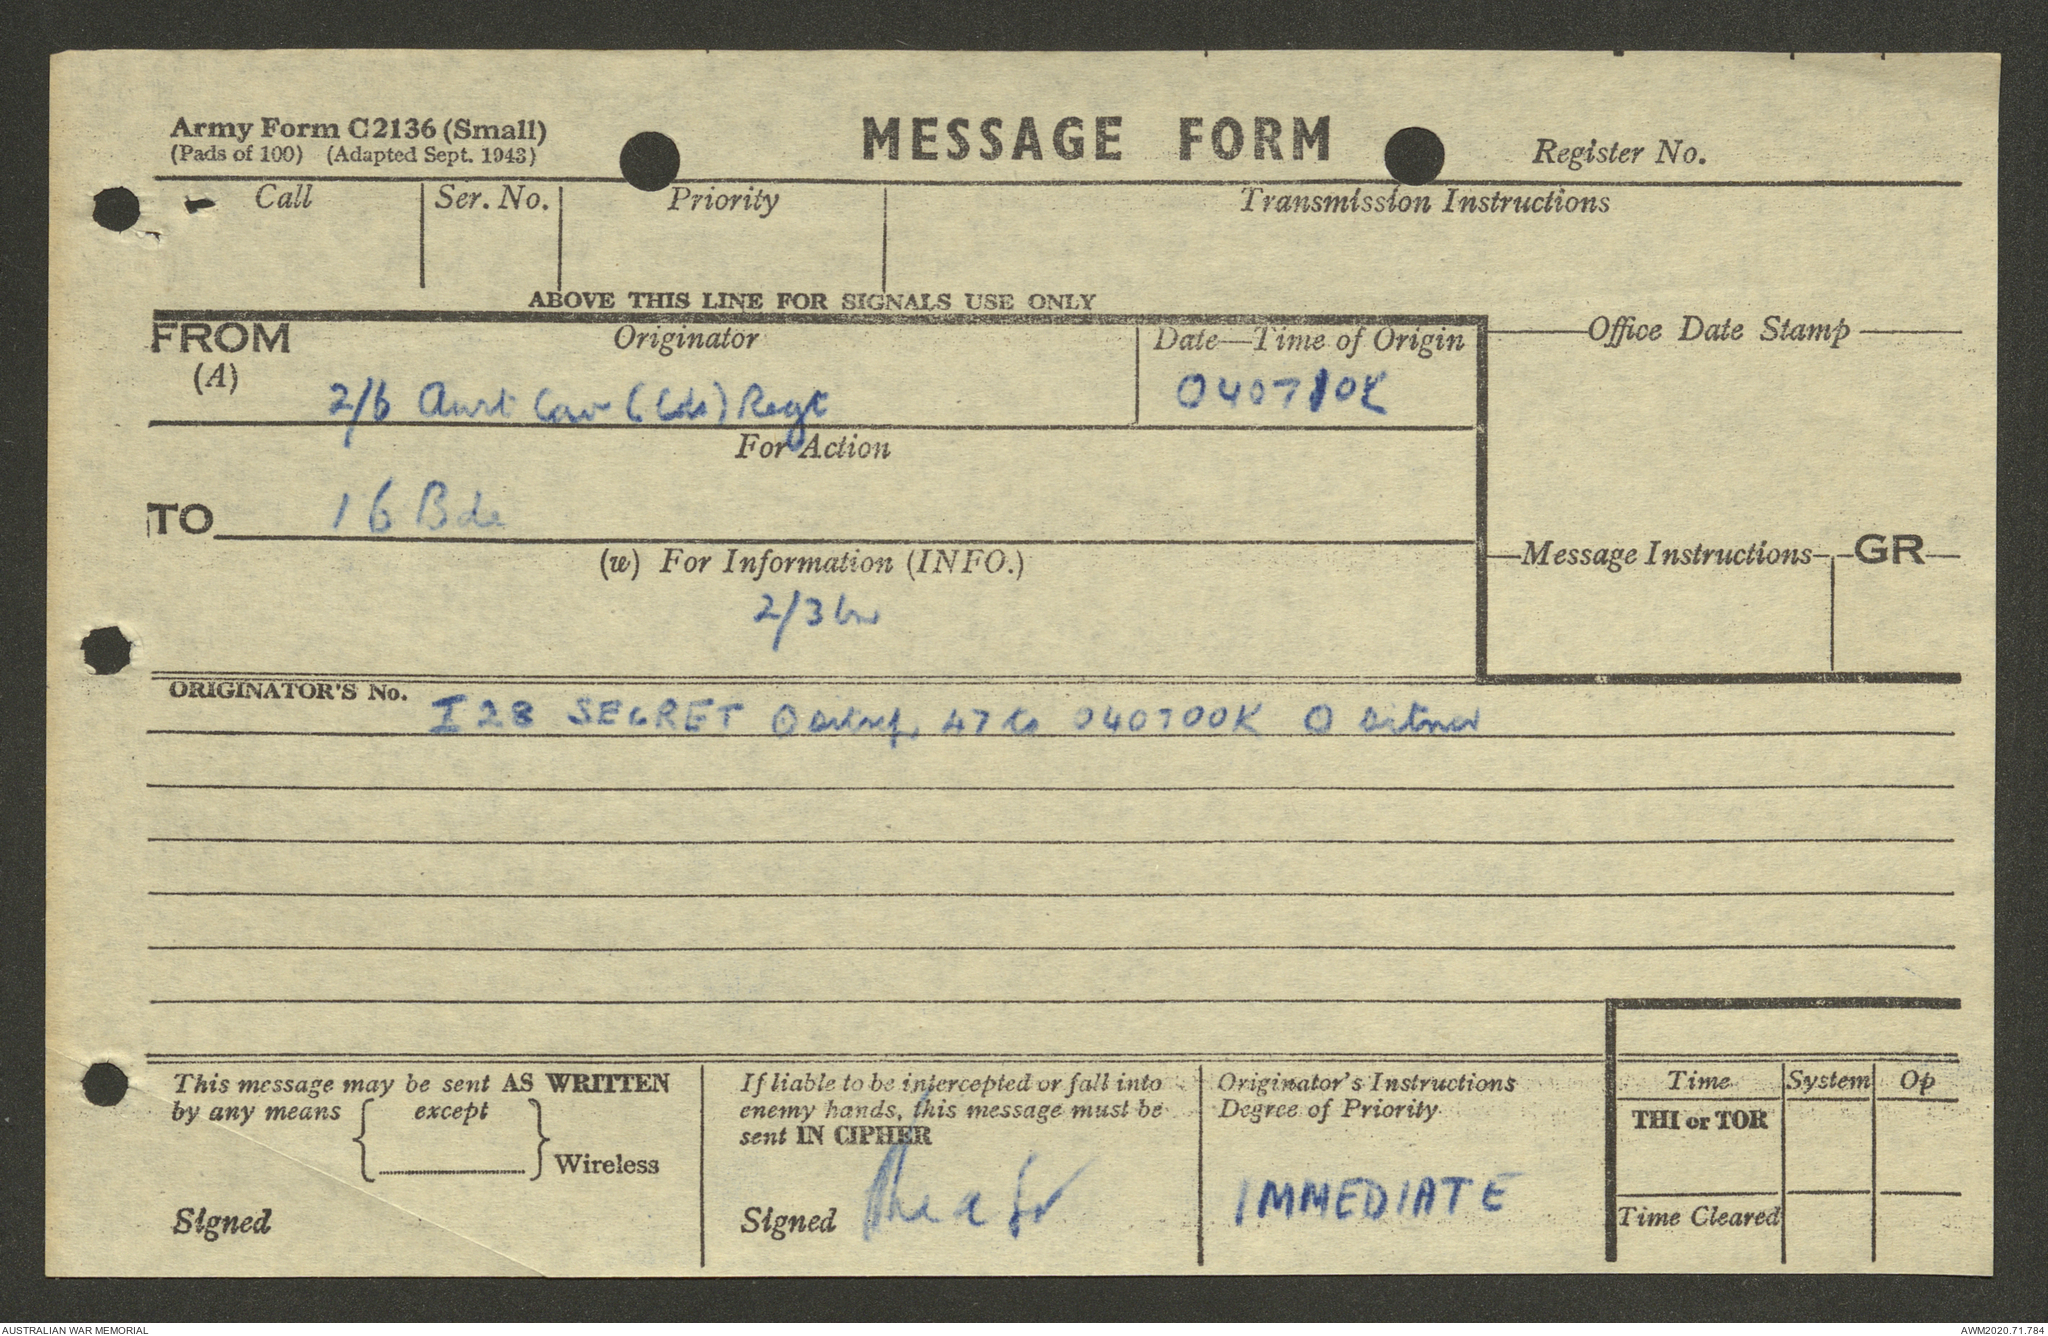 Army Form C2136 (Small)
(Pads of 100) (Adapted Sept. 1943)
MESSAGE FORM
Register No.
Call
Ser. No.
Priority
Transmission Instructions
ABOVE THIS LINE FOR SIGNALS USE ONLY
FROM
(A)
Originator
Date—Time of Origin
Office Date Stamp
2/6 Aust Cav (Cdo) Regt
040710K
For Action
TO
16 Bde
(w) For Information (INFO.)
Message Instructions
GR
2/3 bn
ORIGINATOR'S No.
I 28 SECRET O 47 to 040700K O sitnor
This message may be sent AS WRITTEN
by any means { except } Wireless
Signed
If liable to be intercepted or fall into
enemy hands, this message must be
sent IN CIPHER
Signed
Originator's Instructions
Degree of Priority
IMMEDIATE
Time System Op
THI or TOR
Time Cleared
AUSTRALIAN WAR MEMORIAL
AWM2020.71.784